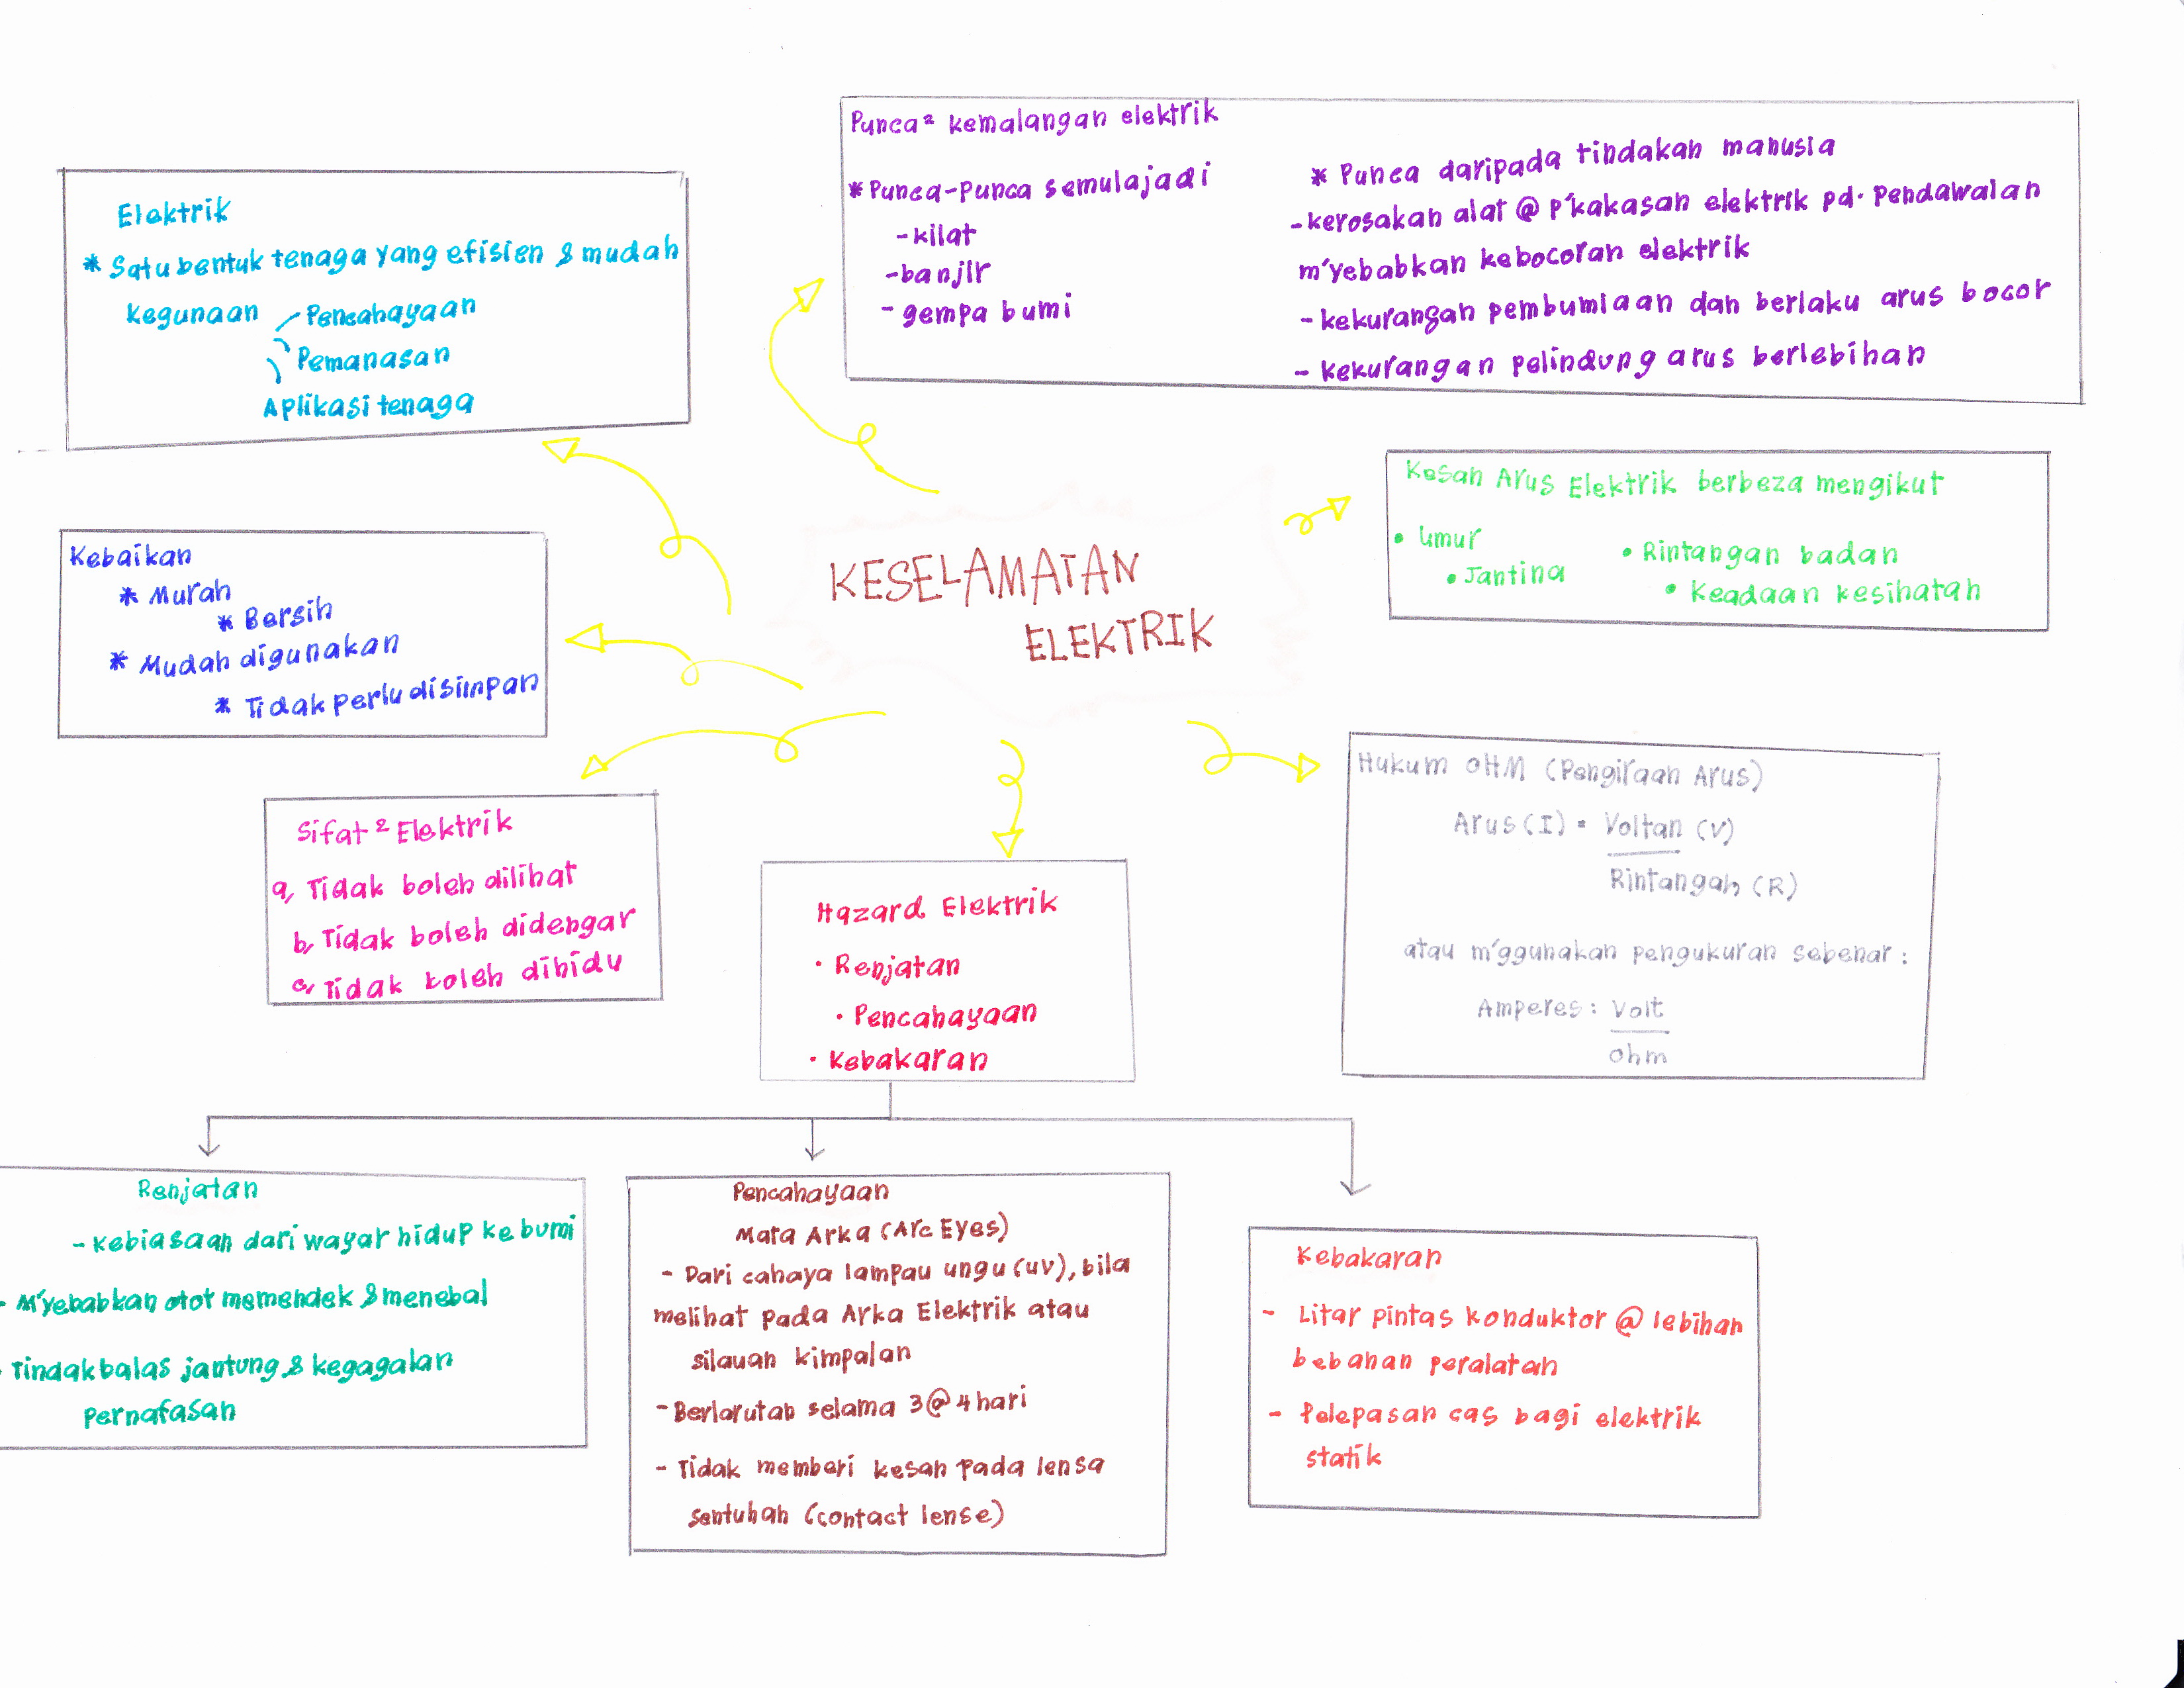 Punca² kemalangan elektrik
* Punca-Punca semulajadi
-kilat
-banjir
- gempa bumi
* Punca daripada tindakan manusia
-kerosakan alat @ p'kakasan elektrik pd. pendawaian
m'yebabkan kebocoran elektrik
- kekurangan pembumiaan dan berlaku arus bocor
- kekurangan pelindung arus berlebihan
Elektrik
* Satu bentuk tenaga yang efisien & mudah
Kegunaan
Pencahayaan
Pemanasan
Aplikasi tenaga
Kesan Arus Elektrik berbeza mengikut
• Umur
• Jantina
• Rintangan badan
• Keadaan kesihatan
KESELAMATAN
ELEKTRIK
Kebaikan
* Murah
* Bersih
* Mudah digunakan
* Tidak perlu disimpan
Hukum OHM (Pengiraan Arus)
Arus (I) = Voltan (V)
Rintangan (R)
atau m'ggunakan pengukuran sebenar :
Amperes : Volt
ohm
Sifat² Elektrik
a, Tidak boleh dilihat
b, Tidak boleh didengar
c, Tidak boleh dihidu
Hazard Elektrik
• Renjatan
• Pencahayaan
• Kebakaran
Renjatan
- Kebiasaan dari wayar hidup ke bumi
- M'yebabkan otot memendek & menebal
- Tindakbalas jantung & kegagalan
pernafasan
Pencahayaan
Mata Arka (Arc Eyes)
- Dari cahaya lampau ungu (uv), bila
melihat pada Arka Elektrik atau
silauan kimpalan
- Berlarutan selama 3 @ 4 hari
- Tidak memberi kesan pada lensa
sentuhan (contact lense)
Kebakaran
- Litar pintas konduktor @ lebihan
bebanan peralatan
- Pelepasan cas bagi elektrik
statik